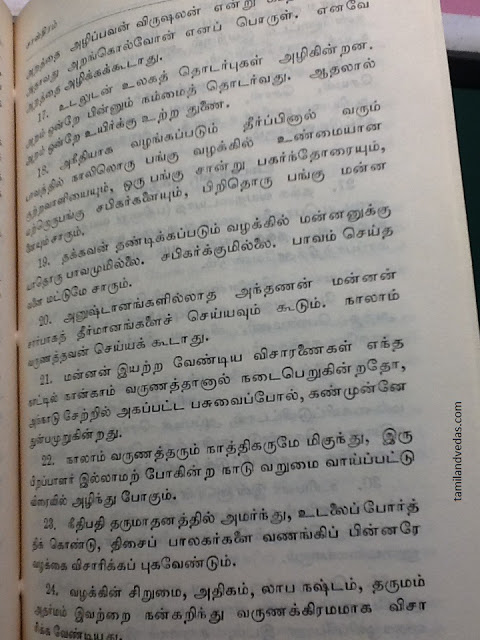 சாஸ்திரம்
அறத்தை அழிப்பவன் விருஷலன் என்று
அதாவது அறங்கொல்வோன் எனப் பொருள். எனவே
அறத்தை அழிக்கக்கூடாது.
17. உடலுடன் உலகத் தொடர்புகள் அழிகின்றன.
அறம் ஒன்றே பின்னும் நம்மைத் தொடர்வது. ஆதலால்
அறம் ஒன்றே உயிர்க்கு உற்ற துணை.
18. அநீதியாக வழங்கப்படும் தீர்ப்பினால் வரும்
பாவத்தில் நாலிலொரு பங்கு வழக்கில் உண்மையான
குற்றவாளியையும், ஒரு பங்கு சான்று பகர்ந்தோரையும்,
மற்றொருபங்கு சபிகர்களையும், பிறிதொரு பங்கு மன்ன
னையும் சாரும்.
19. தக்கவன் தண்டிக்கப்படும் வழக்கில் மன்னனுக்கு
யாதொரு பாவமுமில்லை. சபிகர்க்குமில்லை. பாவம் செய்த
வனை மட்டுமே சாரும்.
20. அனுஷ்டானங்களில்லாத அந்தணன் மன்னன்
சார்பாகத் தீர்மானங்களைச் செய்யவும் கூடும். நாலாம்
வருணத்தவன் செய்யக் கூடாது.
21. மன்னன் இயற்ற வேண்டிய விசாரணைகள் எந்த
நாட்டில் நான்காம் வருணத்தானால் நடைபெறுகின்றதோ,
அந்நாடு சேற்றில் அகப்பட்ட பசுவைப்போல், கண்முன்னே
துன்பமுறுகின்றது.
22. நாலாம் வருணத்தரும் நாத்திகருமே மிகுந்து, இரு
பிறப்பாளர் இல்லாமற் போகின்ற நாடு வறுமை வாய்ப்பட்டு
விரைவில் அழிந்து போகும்.
23. நீதிபதி தருமாதனத்தில் அமர்ந்து, உடலைப்போர்த்
திக் கொண்டு, திசைப் பாலகர்களை வணங்கிப் பின்னரே
வழக்கை விசாரிக்கப் புகவேண்டும்.
24. வழக்கின் சிறுமை, அதிகம், லாப நஷ்டம், தருமம்
அதர்மம் இவற்றை நன்கறிந்து வருணக்கிரமமாக விசா
ரிக்க வேண்டியது.
tamilandvedas.com